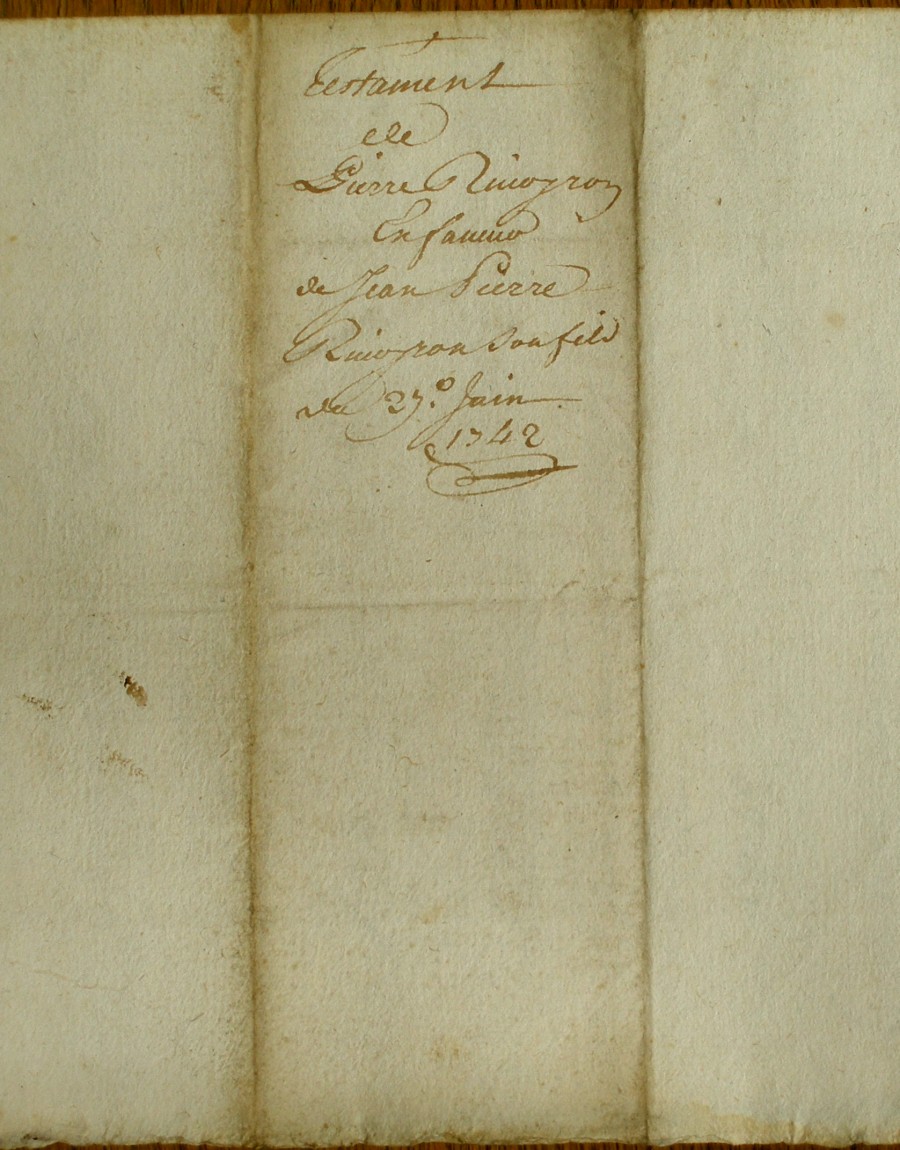 Testament
de
Pierre Rivoyron
En faveur
de Jean Pierre
Rivoyron son fils
du 27.e Juin
1742